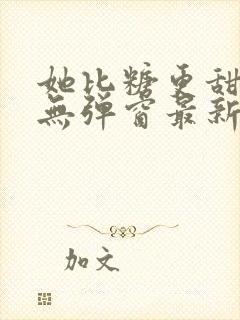 她比糖更甜
無弹窗最新
加文